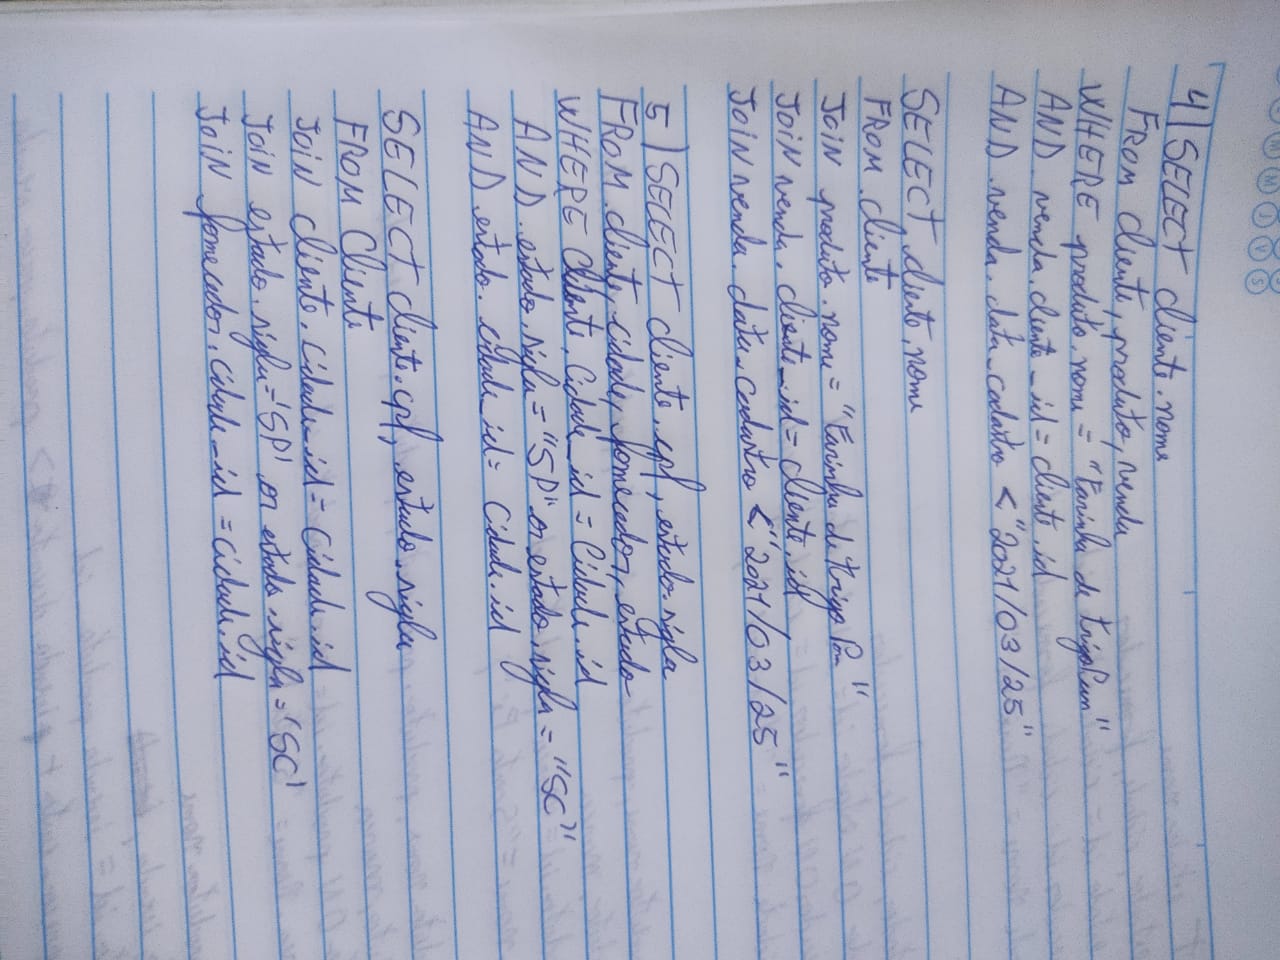 4) SELECT cliente.nome
FROM cliente, produto, venda
WHERE produto.nome = "Farinha de trigo Pan"
AND venda.cliente_id = cliente.id
AND venda.data_cadastro < "2021/03/25"
SELECT cliente.nome
FROM cliente
JOIN produto.nome = "Farinha de trigo Pan"
JOIN venda.cliente_id = cliente.id
JOIN venda.data_cadastro < "2021/03/25"
5) SELECT cliente.cpf, estado.sigla
FROM cliente, cidade, fornecedor, estado
WHERE cliente.cidade_id = cidade.id
AND estado.sigla = "SP" or estado.sigla = "SC"
AND estado.cidade_id = cidade.id
SELECT cliente.cpf, estado.sigla
FROM cliente
JOIN cliente.cidade_id = cidade.id
JOIN estado.sigla = 'SP' or estado.sigla = 'SC'
JOIN fornecedor.cidade_id = cidade.id